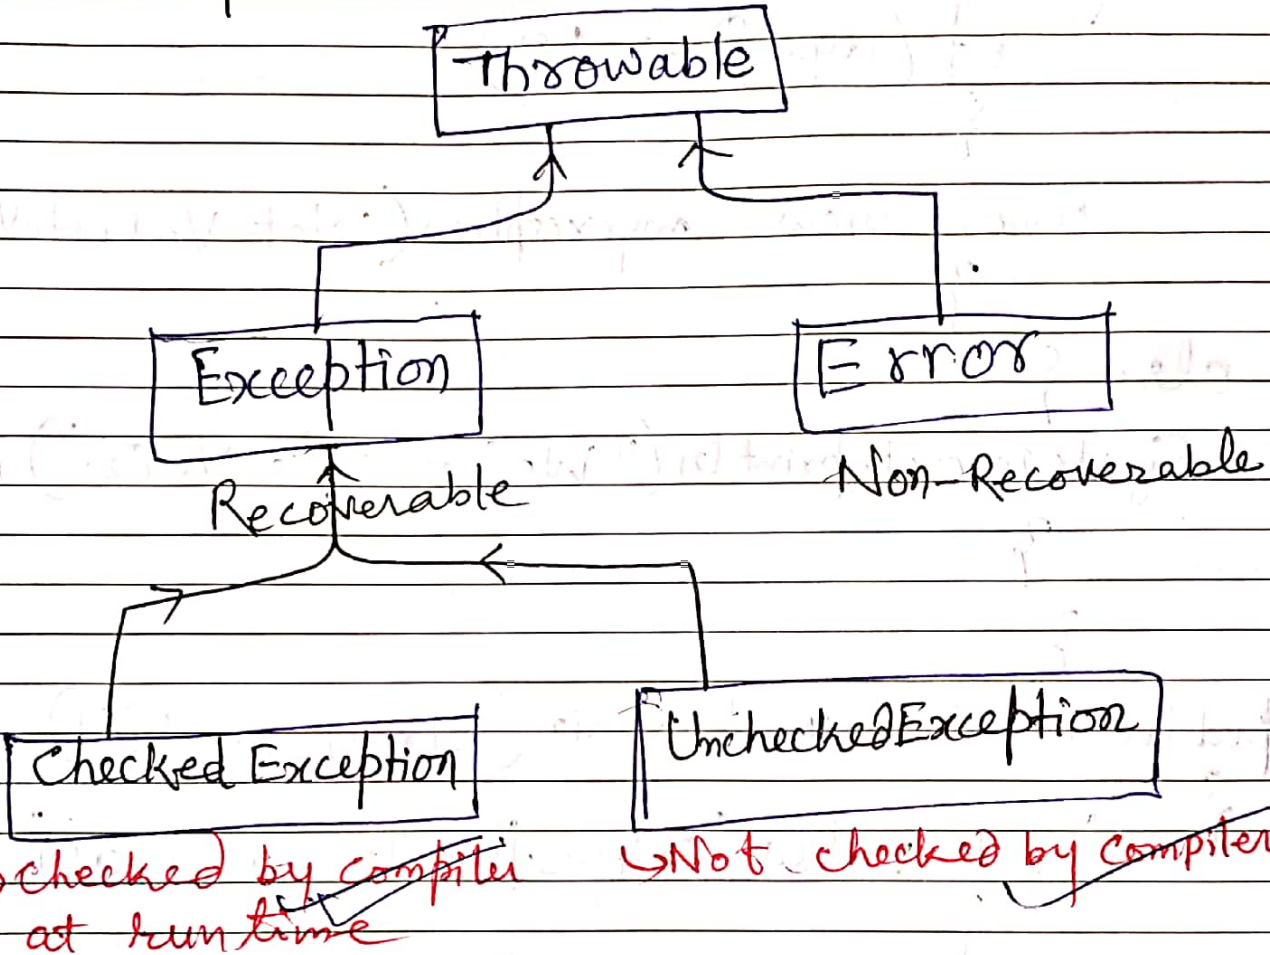 Throwable
Exception
Error
Recoverable
Non-Recoverable
Checked Exception
UncheckedException
checked by compiler
at runtime
↳Not checked by compiler